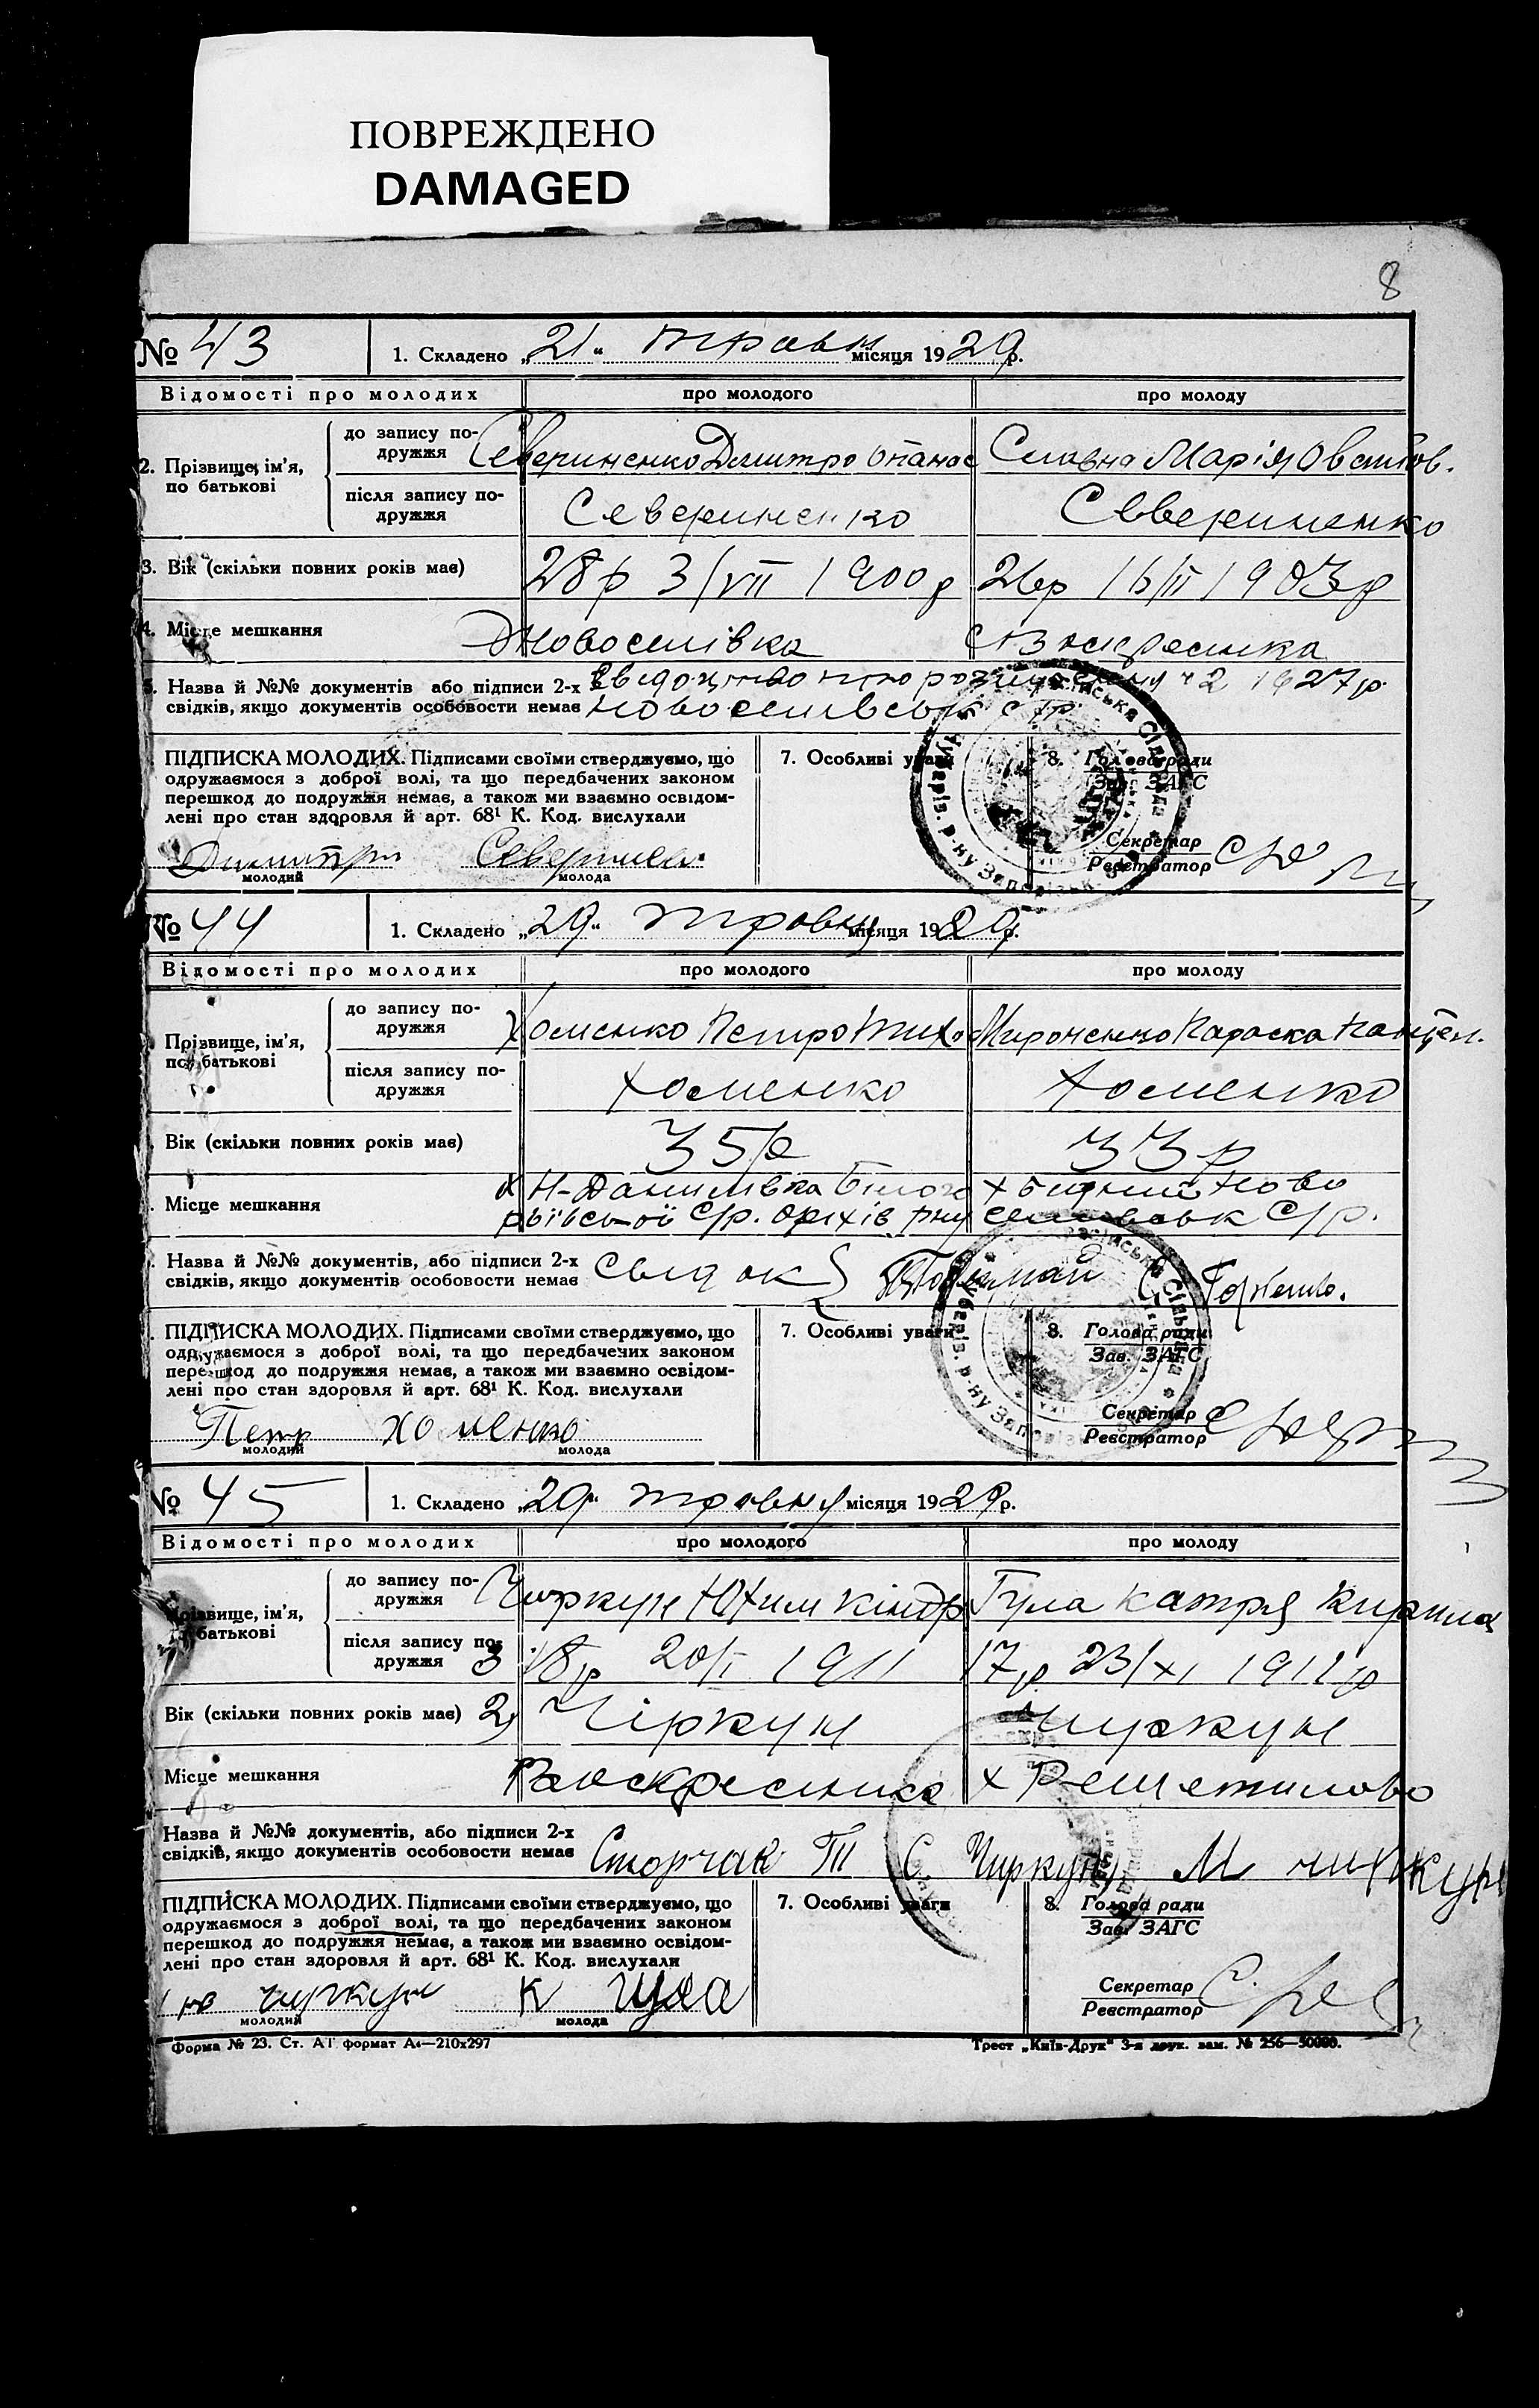 ПОВРЕЖДЕНО
DAMAGED
8
№ 43
1. Складено „21“ травн місяця 1929р.
Відомості про молодих
про молодого
про молоду
2. Прізвище, ім'я, по батькові
до запису по-дружжя
Севериненко Дмитро Опанас
Славна Марія
після запису по-дружжя
Севериненко
Севериненко
3. Вік (скільки повних років має)
28р 3/VII 1900р
26р 16/II 1903р
4. Місце мешкання
Новоселівка
5. Назва й №№ документів або підписи 2-х
свідків, якщо документів особовости немає
1927р.
с/р.
ПІДПИСКА МОЛОДИХ. Підписами своїми стверджуємо, що
одружаємося з доброї волі, та що передбачених законом
перешкод до подружжя немає, а також ми взаємно освідом-
лені про стан здоровля й арт. 68¹ К. Код. вислухали
молодий
молода
7. Особливі уваги
8. Голова ради
Зав. ЗАГС
Секретар
Реєстратор
№ 44
1. Складено „29“ травня місяця 1929р.
Відомості про молодих
про молодого
про молоду
Прізвище, ім'я, по батькові
до запису по-дружжя
Хоменко Петро Тихо
Мироненко Параска Пантел.
після запису по-дружжя
Хоменко
Хоменко
Вік (скільки повних років має)
35р
33р
Місце мешкання
х Н-Данилівка Білого
х Ново
рьївської С/р. Оріхів рну
селівськ С/р.
Назва й №№ документів, або підписи 2-х
свідків, якщо документів особовости немає
Свідок
ПІДПИСКА МОЛОДИХ. Підписами своїми стверджуємо, що
одружаємося з доброї волі, та що передбачених законом
перешкод до подружжя немає, а також ми взаємно освідом-
лені про стан здоровля й арт. 68¹ К. Код. вислухали
Петр хоменко
молодий
молода
7. Особливі уваги
8. Голова ради
Зав. ЗАГС
Секретар
Реєстратор
№ 45
1. Складено „29“ травня місяця 1929р.
Відомості про молодих
про молодого
про молоду
Прізвище, ім'я, батькові
до запису по-дружжя
Чиркун Юхим Кіндр
Гула Катря Кирила
після запису по-дружжя
3 18р 20/I 1911
17р 23/XI 1911р
Вік (скільки повних років має)
2) Чіркун
Чиркун
Місце мешкання
Воскресенка
х Решетилово
Назва й №№ документів, або підписи 2-х
свідків, якщо документів особовости немає
Сторчак Т С. Чиркун М чиркун
ПІДПИСКА МОЛОДИХ. Підписами своїми стверджуємо, що
одружаємося з доброї волі, та що передбачених законом
перешкод до подружжя немає, а також ми взаємно освідом-
лені про стан здоровля й арт. 68¹ К. Код. вислухали
ю чиркун К гула
молодий
молода
7. Особливі уваги
8. Голова ради
Зав. ЗАГС
Секретар
Реєстратор
Форма № 23. Ст. А1 формат А4—210x297
Трест „Київ-Друк“ 3-я друк. зам. № 256—50000.